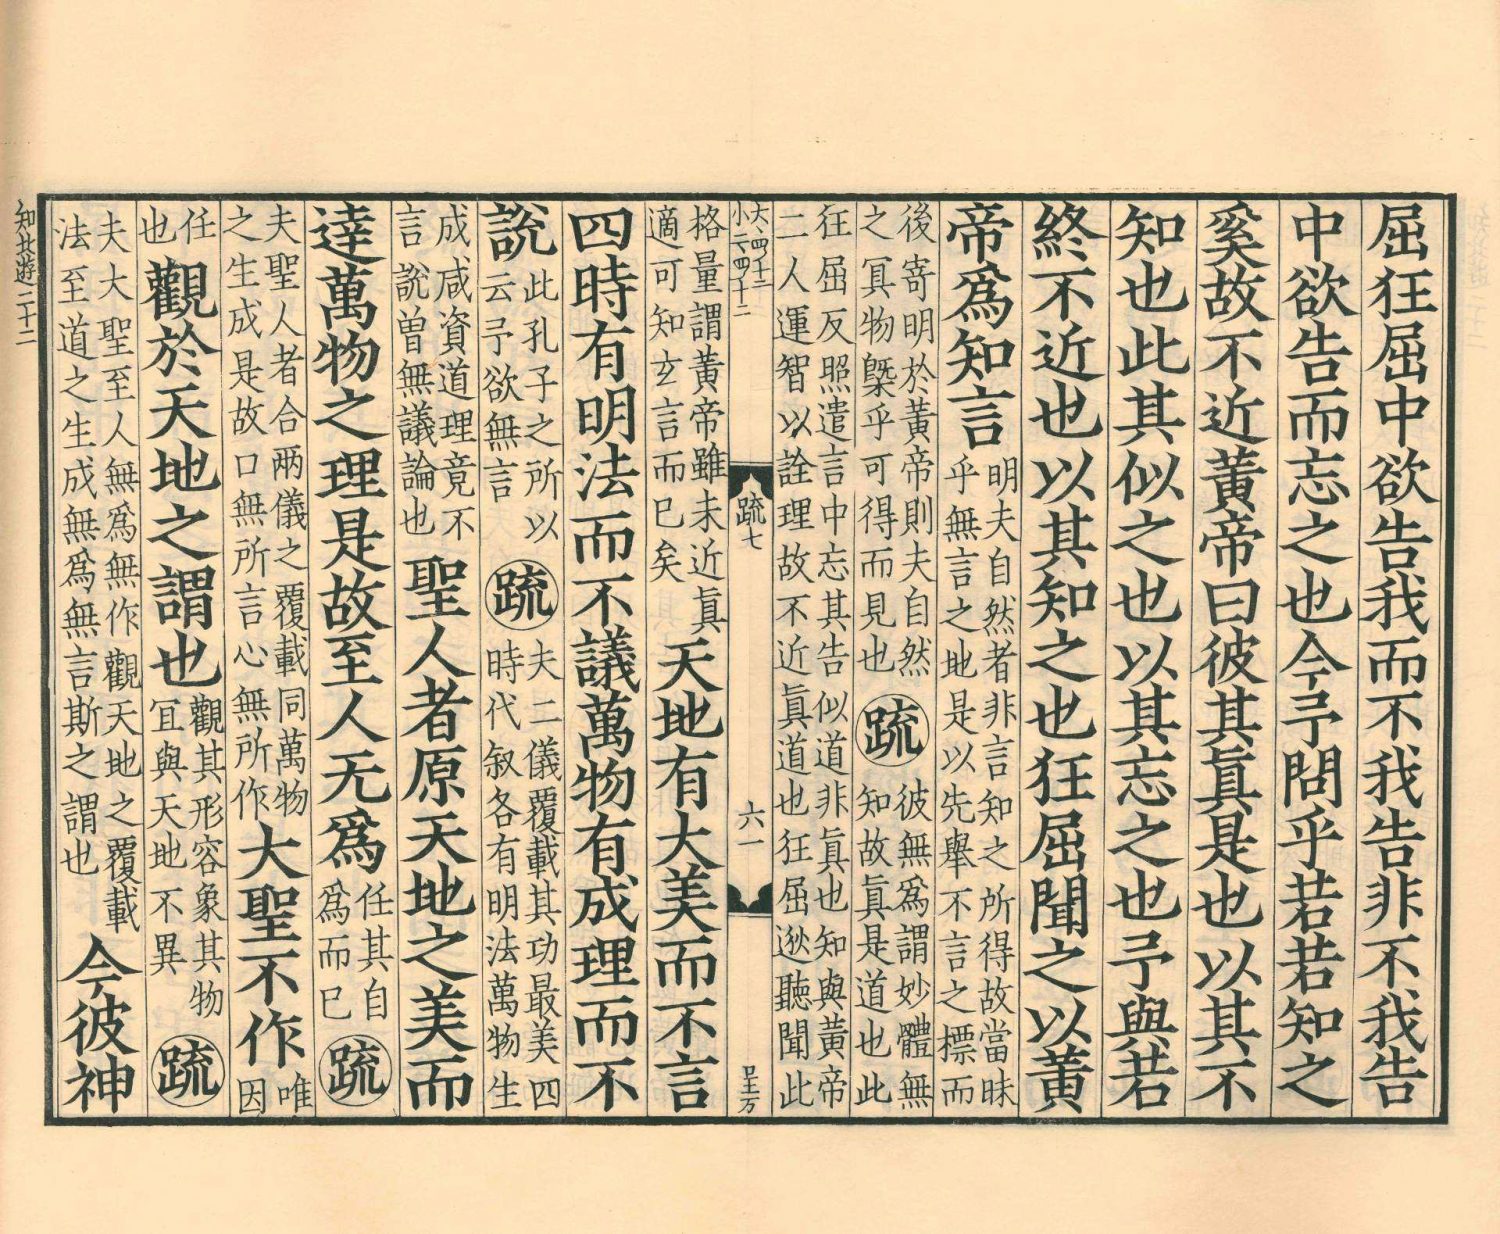 屈狂屈中欲告我而不我告非不我告
中欲告而忘之也今予問乎若若知之
奚故不近黃帝曰彼其眞是也以其不
知也此其似之也以其忘之也予與若
終不近也以其知之也狂屈聞之以黃
帝爲知言
明夫自然者非言知之所得故當昧
乎無言之地是以先舉不言之標而
後寄明於黃帝則夫自然
之冥物槩乎可得而見也
疏
彼無爲謂妙體無
知故眞是道也此
狂屈反照遣言中忘其告似道非眞也知與黃帝
二人運智以詮理故不近眞道也狂屈逖聽聞此
大四十三
小二四十二
疏七
六一
格量謂黃帝雖未近眞
適可知玄言而已矣
天地有大美而不言
四時有明法而不議萬物有成理而不
說
此孔子之所以
云予欲無言
疏
夫二儀覆載其功最美四
時代叙各有明法萬物生
成咸資道理竟不
言說曾無議論也
聖人者原天地之美而
達萬物之理是故至人无爲
任其自
爲而已
疏
夫聖人者合兩儀之覆載同萬物
之生成是故口無所言心無所作
大聖不作
唯
因
任
也
觀於天地之謂也
觀其形容象其物
宜與天地不異
疏
夫大聖至人無爲無作觀天地之覆載
法至道之生成無爲無言斯之謂也
今彼神
知北遊二十二